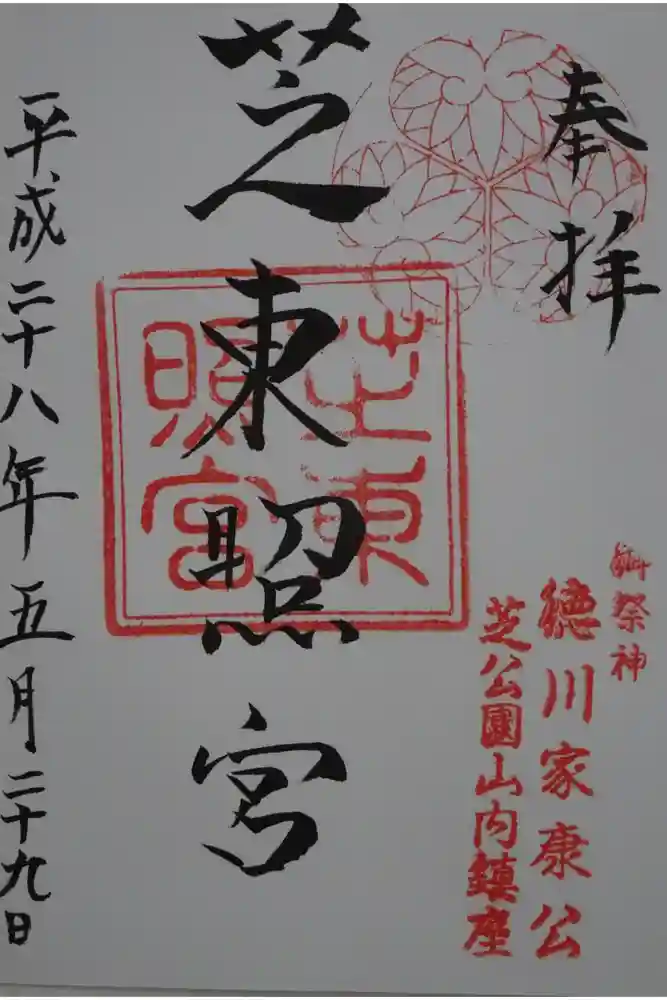 奉拝
御祭神
徳川家康公
芝公園山内鎮座
芝東照宮
芝東
照宮
平成二十八年五月二十九日